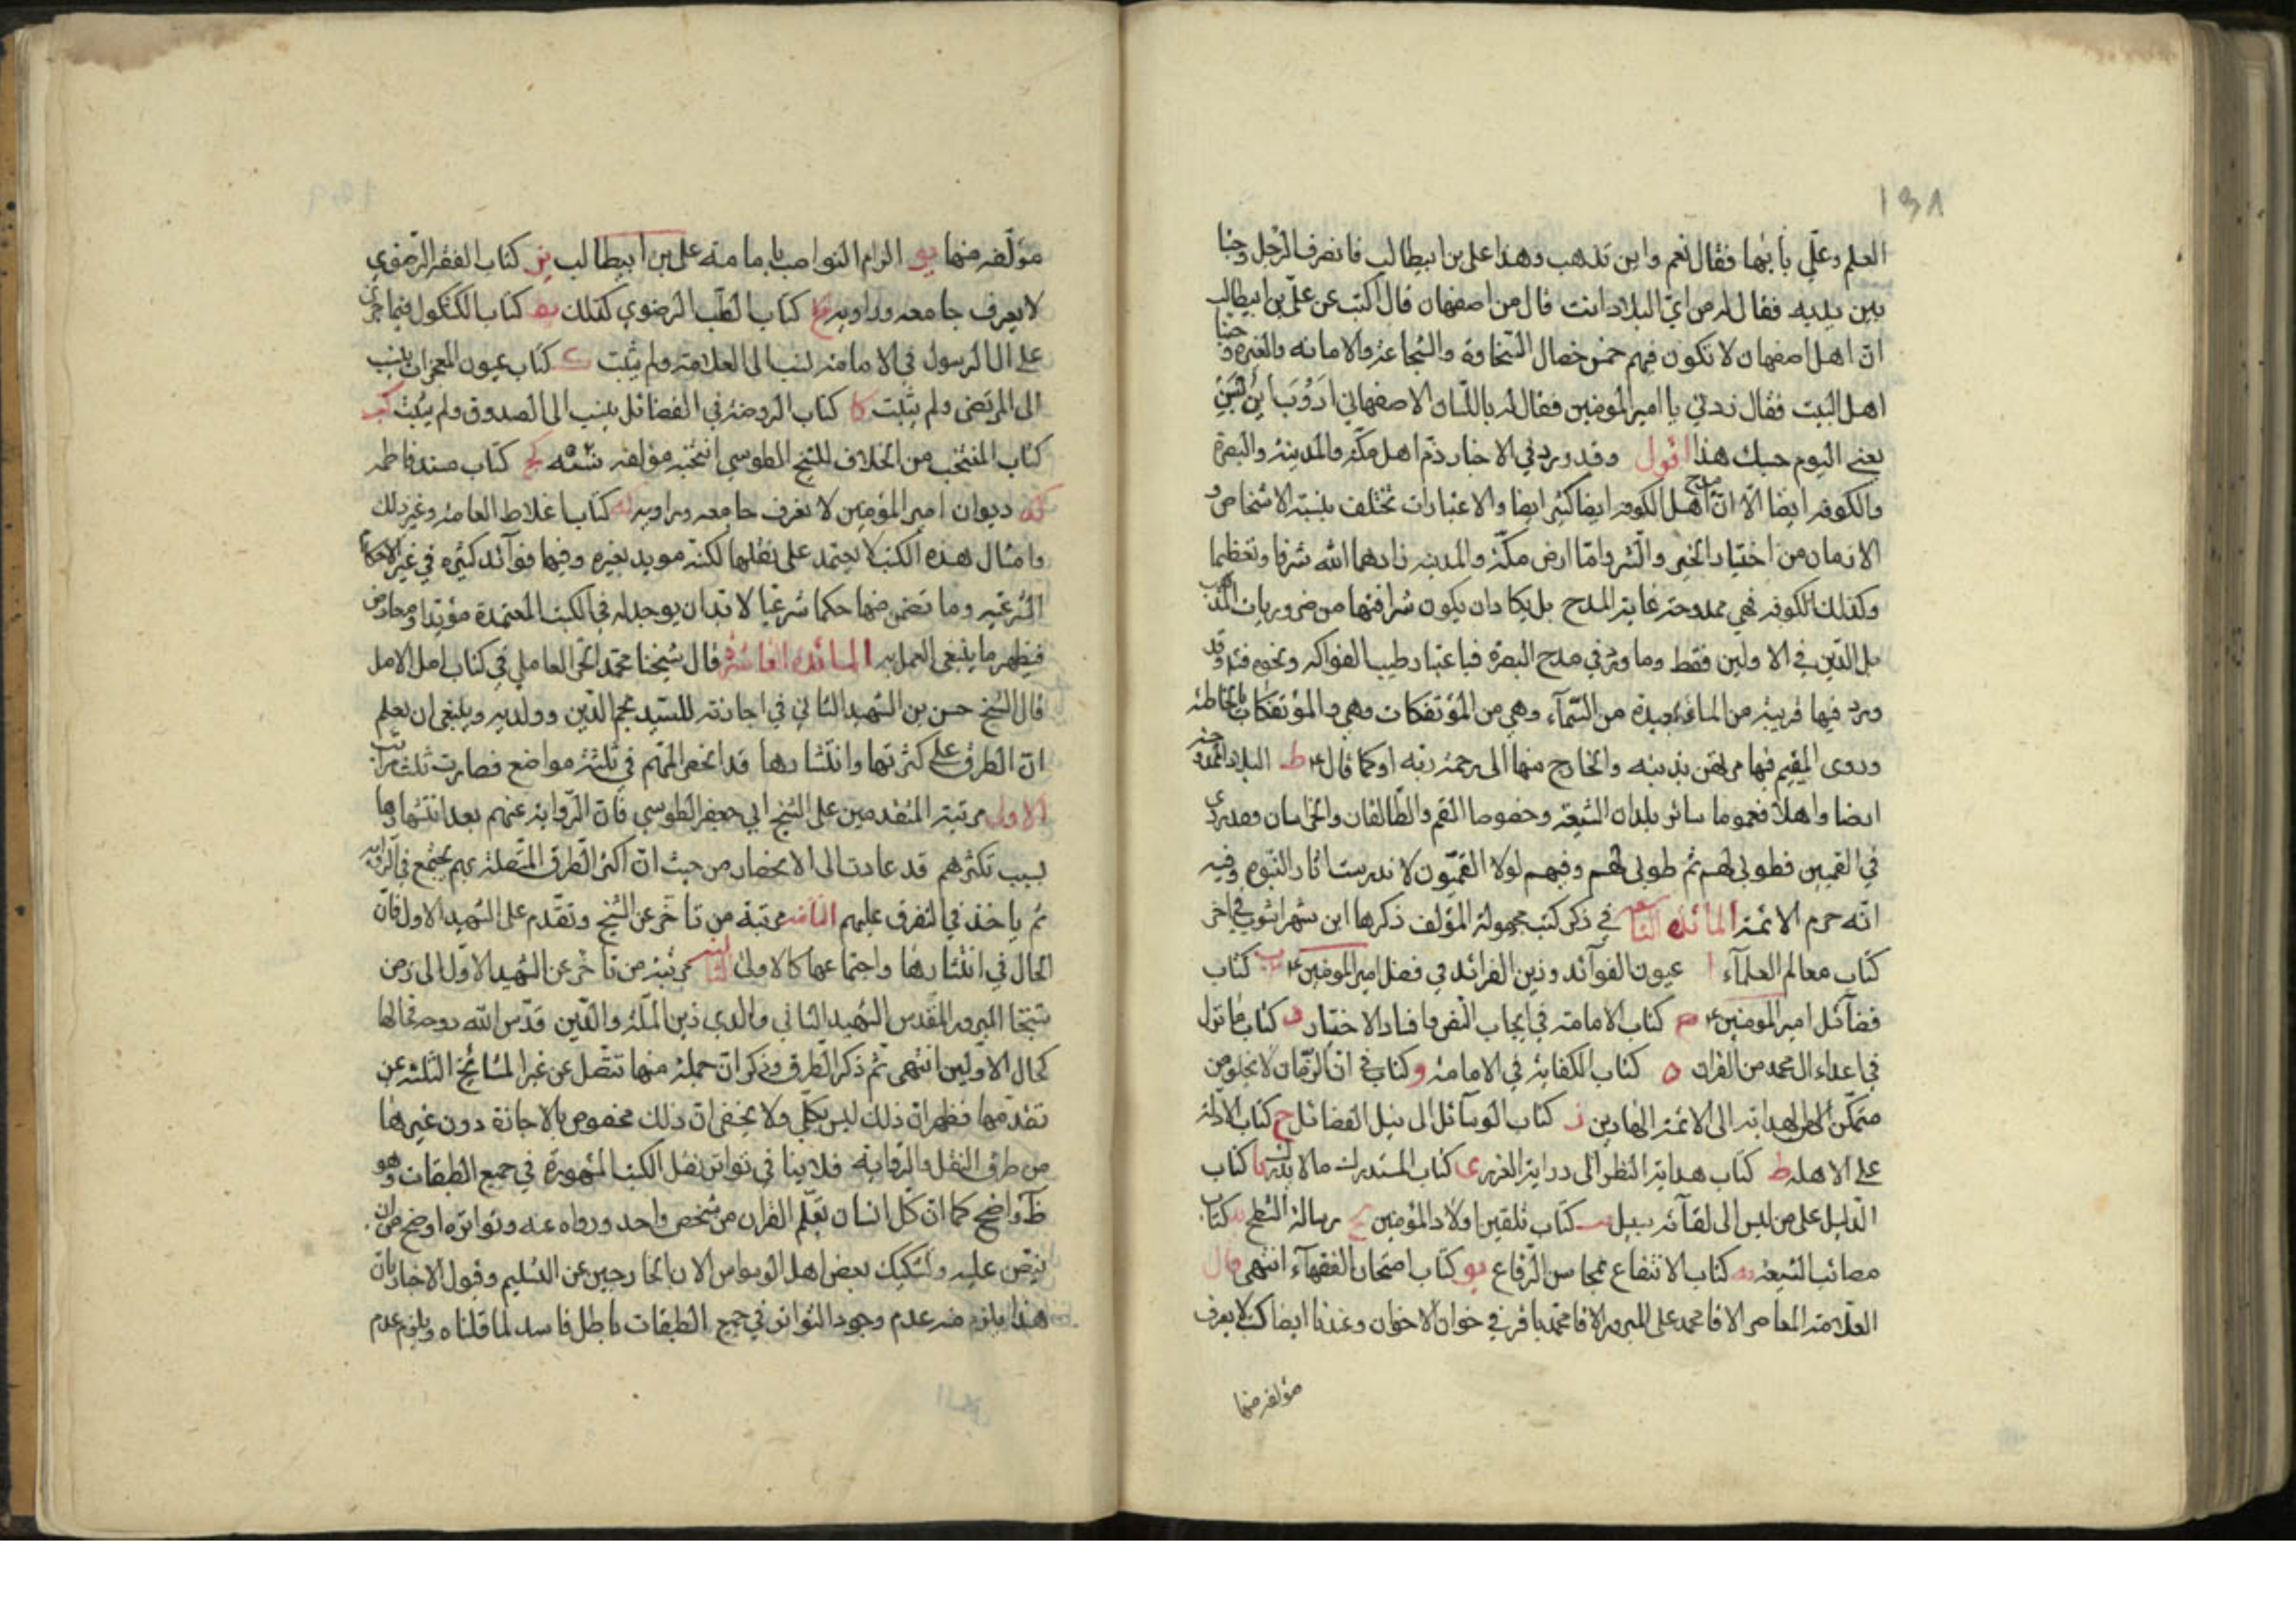 ١٣٨
العلم وعلي بابها فقال نعم واين تذهب وهذا علي بن ابيطالب فانصرف الرجل وجثا
بين يديه فقال له من اي البلاد انت قال من اصفهان قال اكتب عن علي بن ابيطالب
ان اهل اصفهان لا تكون فيهم خمس خصال السخاوة والشجاعة والامانة والغيرة وحبنا
اهل البيت فقال زدني يا امير المومنين فقال له باللسان الاصفهاني
يعني اليوم حسبك هذا اقول وقد ورد في الاخبار ذم اهل مكة والمدينة والبصرة
والكوفه ايضا الا ان مدح اهل الكوفه ايضا كثير ايضا والاعتبارات تختلف بنسبة الاشخاص و
الازمان من اختيار الخير والشر واما ارض مكة والمدينه زادهما الله شرفا وتعظيما
وكذلك الكوفه فهي ممدوحة غاية المدح بل يكاد ان يكون شرافتها من ضروريات المذهب
بل الدين في الاولين فقط وما ورد في مدح البصرة فباعتبار طيب الفواكه ونحوه فقد
ورد فيها قريبة من الماء بعيدة من السماء وهي من المؤتفكات وهي والمؤتفكات بالخاطئه
وروى المقيم فيها مرتهن بذنبه والخارج منها الى رحمة ربه او كما قال ع ط البلاد الممدوحة
ايضا واهلا فعموما سائر بلدان الشيعة وخصوصا القم والطالقان والخراسان وقد روي
في القميين فطوبى لهم ثم طوبى لهم وفيهم لولا القميون لاندرست اثار النبوه وفيه
انه حرم الائمة المائدة التاسعه في ذكر كتب مجهولة المؤلف ذكرها ابن شهراشوب في اخر
كتاب معالم العلمآء ا عيون الفوآئد وزين الفرائد في فضل امير المومنين ع ب كتاب
فضآئل امير المومنين ع ج كتاب الامامة في ايجاب النص وافساد الاختيار د كتاب ما نزل
في اعداء ال محمد من القران ه كتاب الكفاية في الامامة و كتاب في ان الزمان لا يخلو من
الهداية الى الائمة الهادين ز كتاب الوسآئل الى نيل الفضائل ح كتاب الادلة
على الاهله ط كتاب هداية النظر الى دراية الغرر ى كتاب المستدرك ما لا يدرك يا كتاب
الدليل على من ليس الى لقآئه سبيل يب كتاب تلقين اولاد المؤمنين يج رسالة الشطح يد كتاب
مصائب الشيعه يه كتاب الانتفاع يو كتاب امتحان الفقهآء انتهى قال
العلامة المعاصر الاقا محمد علي المبرور الاقا محمد باقر في خوان الاخوان وعندنا ايضا كتب لا يعرف
مؤلفه منها
مؤلفه منها يو الزام النواصب بامامة علي بن ابيطالب يز كتاب الفقه الرضوي
لا يعرف جامعه وراويه يح كتاب الطب الرضوي كذلك يط كتاب الكشكول فيما جرى
على ال الرسول في الامامة نسب الى العلامة ولم يثبت ك كتاب عيون المعجزات ينسب
الى المرتضى ولم يثبت كا كتاب الروضة في الفضائل ينسب الى الصدوق ولم يثبت كب
كتاب المنتخب من الخلاف للشيخ الطوسي انتخبه مؤلفه كج كتاب مسند فاطمه
كد ديوان امير المؤمنين لا نعرف جامعه وراويه كه كتاب اغلاط العامة وغير ذلك
وامثال هذه الكتب لا يعتمد على نقلها لكنه مويد لغيره وفيها فوآئد كثيره في غير الاحكام
الشرعيه وما تضمن منها حكما شرعيا لا بد ان يوجد له في الكتب المعتمدة مؤيد او معارض
فيظهر ما ينبغي العمل به المائدة العاشرة قال شيخنا محمد الحر العاملي في كتاب امل الامل
قال الشيخ حسن بن الشهيد الثاني في اجازته للسيد نجم الدين وولديه وينبغي ان يعلم
ان الطرق على كثرتها وانتشارها قد انحصر المهم في ثلثة مواضع فصارت ثلث مراتب
الاولى مرتبة المتقدمين على الشيخ ابي جعفر الطوسي فان الرواية عنهم بعد انتشارها
بسبب تكثرهم قد عادت الى الانحصار من حيث ان اكثر الطرق المتصلة بهم يجتمع في الرواية
ثم ياخذ في التفرق عليهم الثانية مرتبة من تاخر عن الشيخ وتقدم على الشهيد الاول فان
الحال في انتشارها واجتماعها كالاولى الثالثة مرتبة من تاخر عن الشهيد الاول الى زمن
شيخنا المبرور المقدس الشهيد الثاني والدي زين الملة والدين قدس الله روحه فحالها
كحال الاولين انتهى ثم ذكر الطرق وذكر ان جملة منها تتصل عن غير المشائخ الثلثة عن
تقدمها فظهر ان ذلك ليس بكلي ولا يخفى ان ذلك مخصوص بالاجازة دون غيرها
من طرق النقل والرواية فلا ينافي تواتر نقل الكتب المشهورة في جميع الطبقات وهو
ظ واضح كما ان كل انسان تعلم القران من شخص واحد ورواه عنه وتواتره اوضح من ان
ينص عليه وتشكيك بعض اهل الوسواس الان الخارجين عن التسليم وقبول الاخبار بان
هذا يلزم منه عدم وجود التواتر في جميع الطبقات باطل فاسد لما قلناه ويلزم عدم